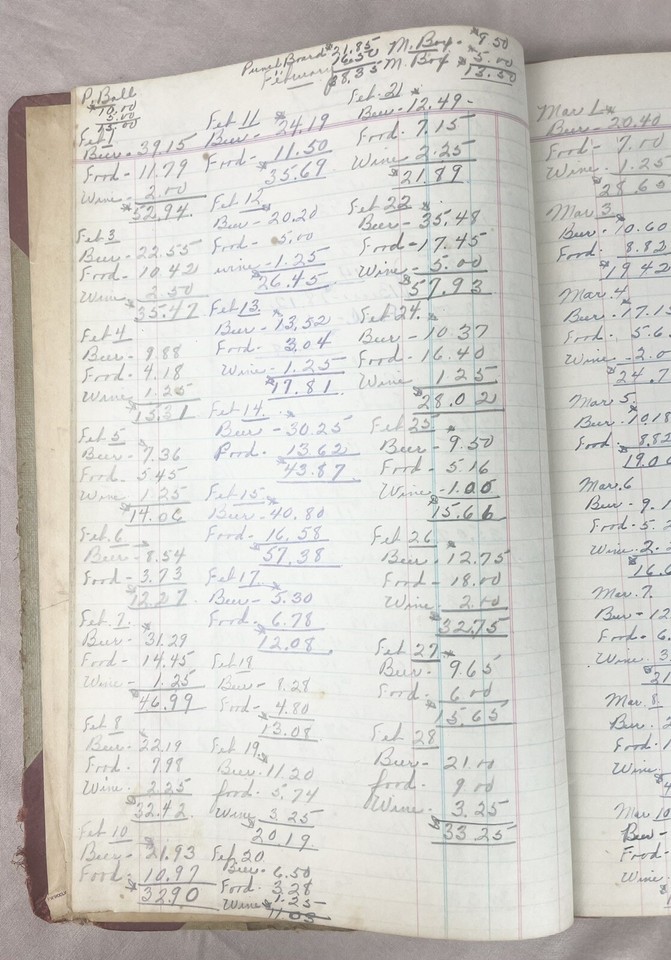 Punch Board $21.85 M. Box - $9.50
16.50 M. Box $5.00
February $38.35 13.50
P. Ball
10.00
5.00
15.00
Feb 1
Beer - 39.15
Food - 11.79
Wine - 2.00
$52.94
Feb 3
Beer - 22.55
Food - 10.42
Wine 2.50
$35.47
Feb 4
Beer - 9.88
Food - 4.18
Wine 1.25
$15.31
Feb 5
Beer - 7.36
Food - 5.45
Wine 1.25
$14.06
Feb. 6
Beer - 8.54
Food - 3.73
$12.27
Feb. 7
Beer - 31.29
Food - 14.45
Wine - 1.25
$46.99
Feb 8
Beer - 22.19
Food - 7.98
Wine. 2.25
$32.42
Feb 10
Beer - 21.93
Food - 10.97
$32.90
Feb 11
Beer - 24.19
Food - 11.50
$35.69
Feb 12
Beer - 20.20
Food - 5.00
Wine - 1.25
$26.45
Feb 13
Beer - 13.52
Food - 3.04
Wine - 1.25
$17.81
Feb 14
Beer - 30.25
Food. 13.62
$43.87
Feb 15
Beer - 40.80
Food - 16.58
$57.38
Feb 17
Beer - 5.30
Food. 6.78
$12.08
Feb 18
Beer - 8.28
Food - 4.80
$13.08
Feb 19
Beer - 11.20
Food - 5.74
Wine 3.25
$20.19
Feb 20
Beer - 6.50
Food. 3.28
Wine 1.25
$11.03
Feb 21
Beer - 12.49
Food - 7.15
Wine - 2.25
$21.89
Feb 22
Beer - 35.48
Food - 17.45
Wine - 5.00
$57.93
Feb 24
Beer - 10.37
Food - 16.40
Wine 1 25
$28.02
Feb 25
Beer - 9.50
Food - 5.16
Wine - 1.00
$15.66
Feb 26
Beer - 12.75
Food - 18.00
Wine. 2.00
$32.75
Feb 27
Beer. 9.65
Food. 6 00
$15.65
Feb 28
Beer - 21 00
Food. 9 00
Wine. 3.25
$33.25
Mar 1
Beer - 20.40
Food - 7.00
Wine. 1.25
$28.65
Mar 3
Beer - 10.60
Food. 8.82
$19 42
Mar. 4
Beer - 17.1
Food. 5.6
Wine - 2.0
$24.7
Mar 5
Beer. 10.18
Food. 8.82
19.0
Mar. 6
Beer - 9.1
Food - 5.
Wine 2.
$16.6
Mar 7
Beer - 12
Food - 6.
Wine 3
$21
Mar 8
Beer. 2
Food. 1
Wine
Mar 10
Beer -
Food -
Wine